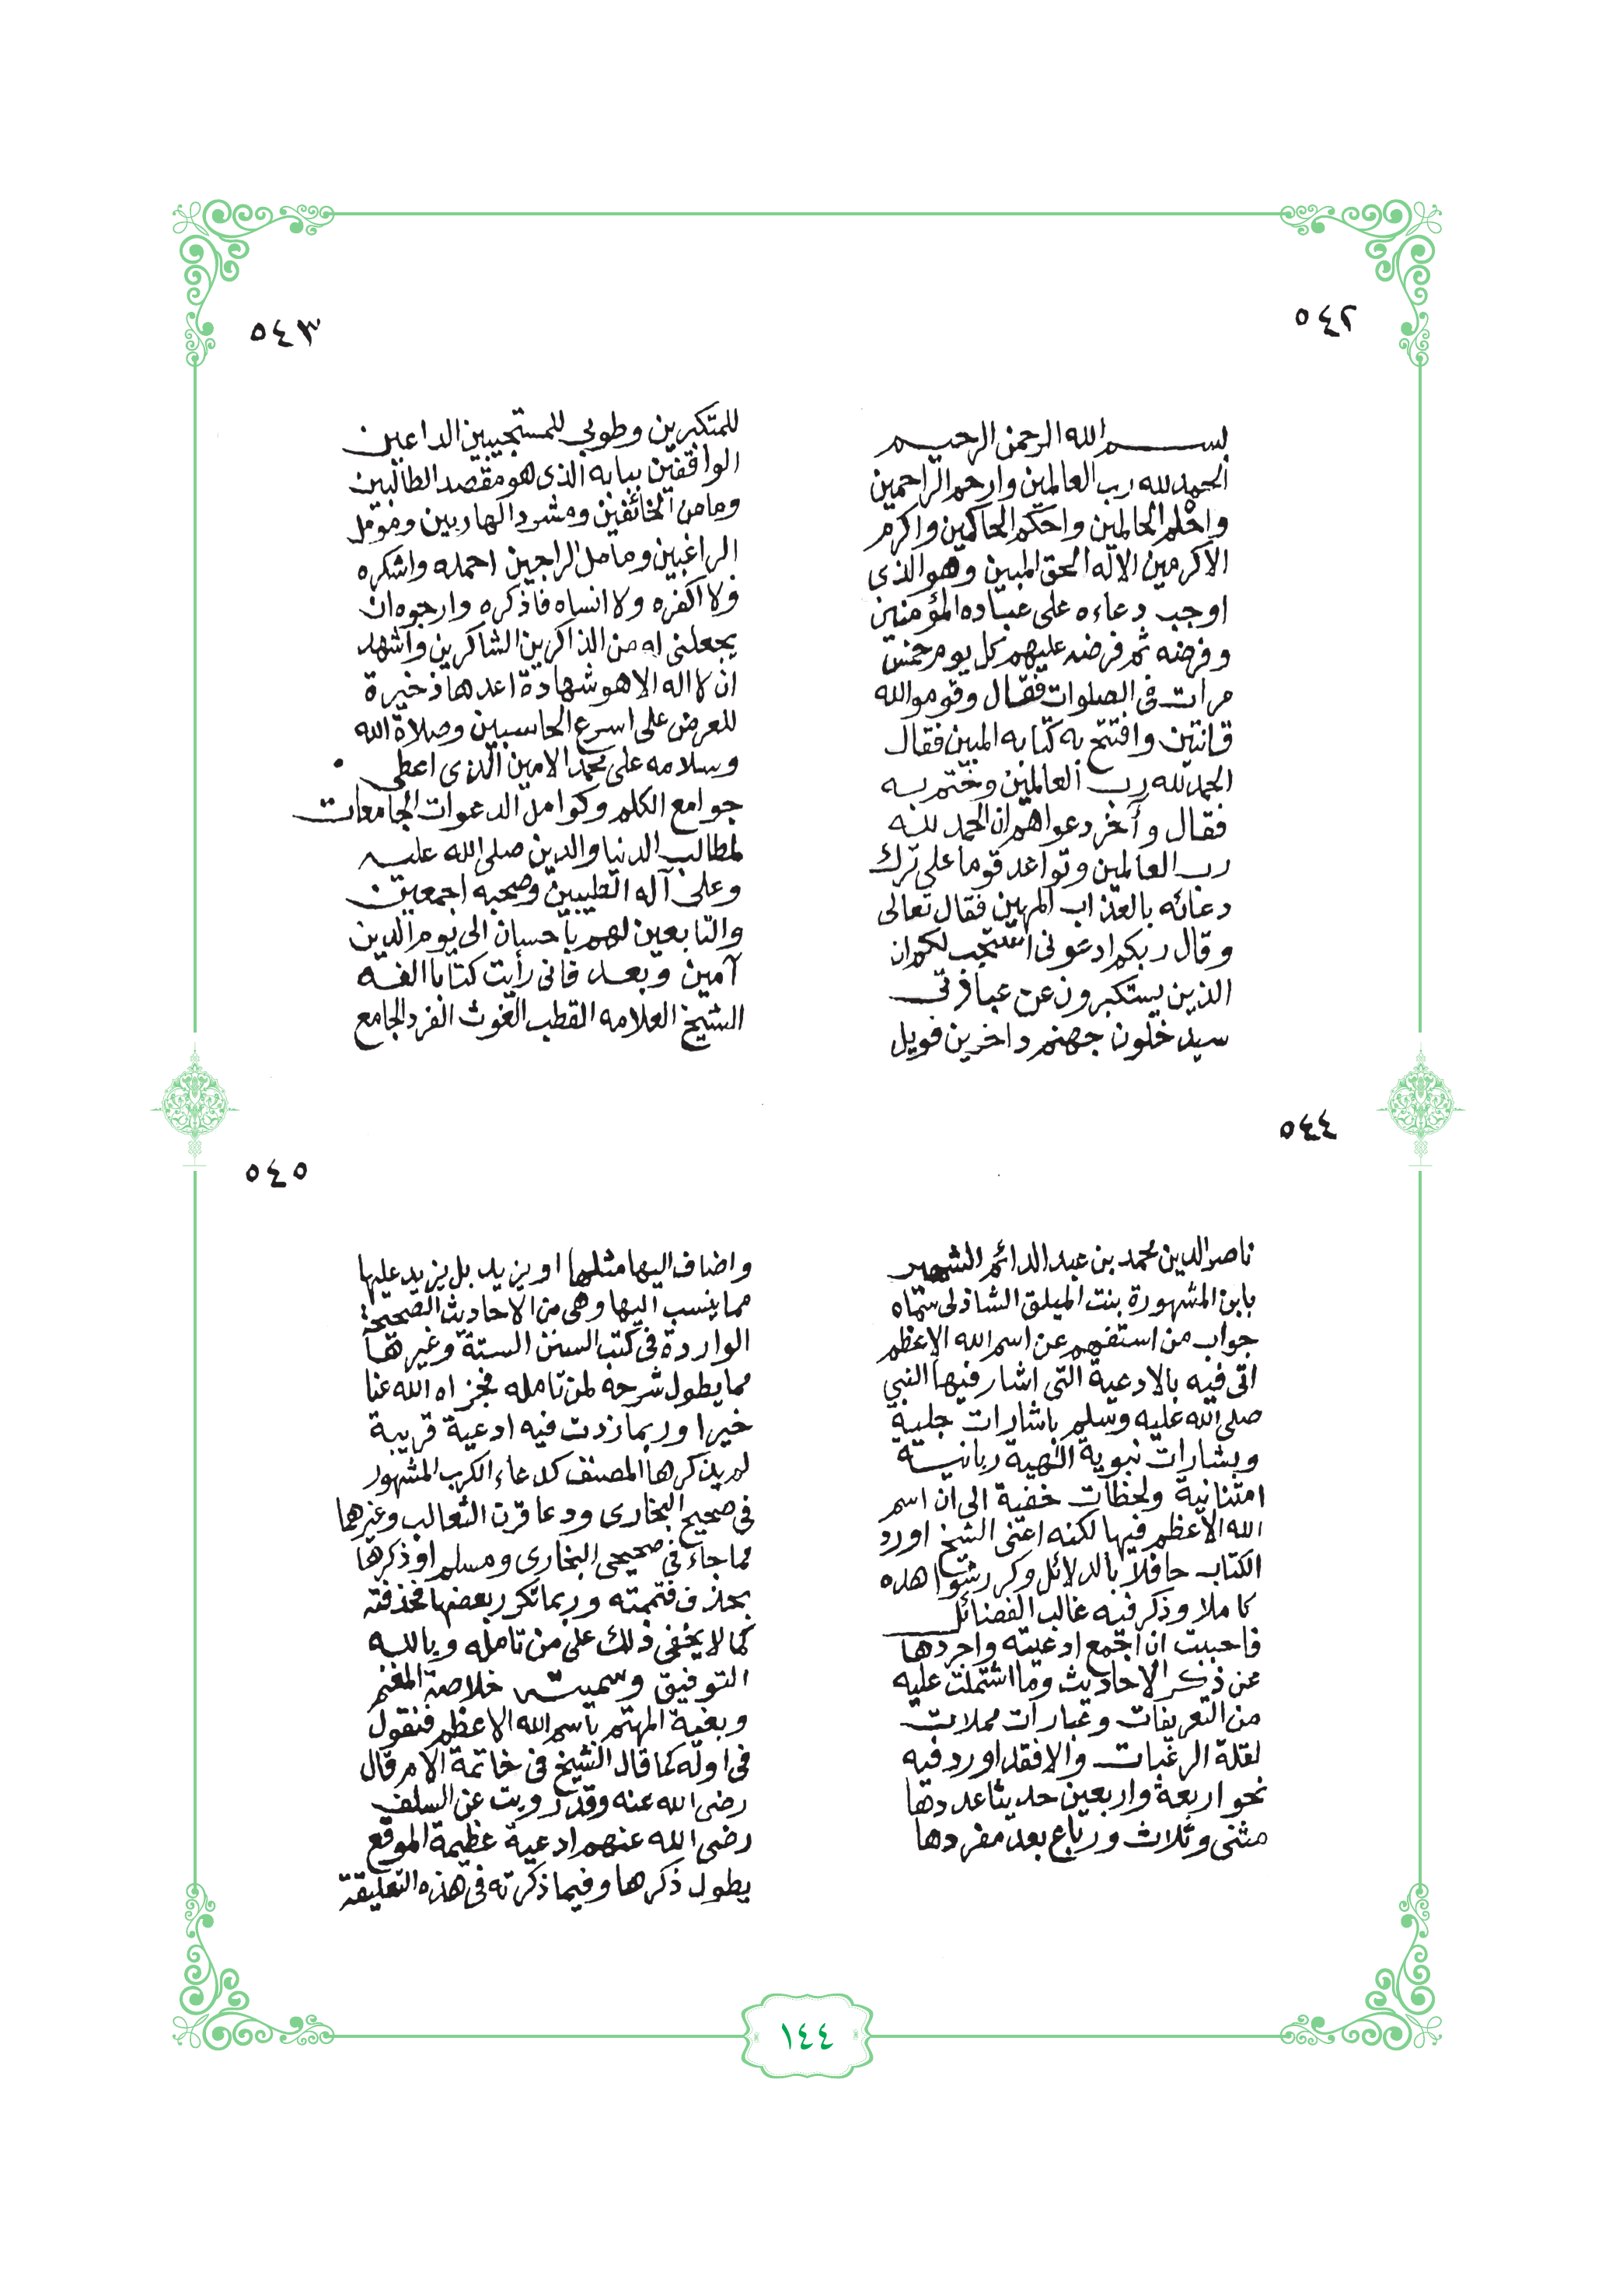 ٥٤٢
بسم الله الرحمن الرحيم
الحمد لله رب العالمين وارحم الراحمين
واحلم الحالمين واحكم الحاكمين واكرم
الاكرمين الاله الحق المبين وهو الذى
اوجب دعاءه على عباده المؤمنين
وفرضه ثم فرضه عليهم كل يوم خمس
مرات فى الصلوات فقال وقوموا لله
قانتين وافتتح به كتابه المبين فقال
الحمد لله رب العالمين وختم به
فقال وآخر دعواهم ان الحمد لله
رب العالمين وتواعد قوما على ترك
دعائه بالعذاب المهين فقال تعالى
وقال ربكم ادعونى استجب لكم ان
الذين يستكبرون عن عبادتى
سيدخلون جهنم داخرين فويل
٥٤٣
للمتكبرين وطوبى للمستجيبين الداعين
الواقفين ببابه الذى هو مقصد الطالبين
ومامن الخائفين ومشرد الهاربين ومومل
الراغبين ومأمل الراجين احمده واشكره
ولا اكفره ولا انساه فاذكره وارجوه ان
يجعلنى له من الذاكرين الشاكرين واشهد
ان لا اله الا هو شهادة اعدها ذخيرة
للعرض على اسرع الحاسبين وصلاة الله
وسلامه على محمد الامين الذى اعطى
جوامع الكلم وكوامل الدعوات الجامعات
لمطالب الدنيا والدين صلى الله عليه
وعلى آله الطيبين وصحبه اجمعين
والتابعين لهم باحسان الى يوم الدين
آمين وبعد فانى رأيت كتابا الفه
الشيخ العلامه القطب الغوث الفرد الجامع
٥٤٤
ناصر الدين محمد بن عبد الدائم الشهير
بابن المشهورة بنت الميلق الشاذلى سماه
جواب من استفهم عن اسم الله الاعظم
اتى فيه بالادعية التى اشار فيها النبي
صلى الله عليه وسلم باشارات جلية
وبشارات نبوية الهية ربانية
امتنانية ولحظات خفية الى ان اسم
الله الاعظم فيها لكنه اعنى الشيخ اورد
الكتاب حافلا بالدلائل وكرر شواهده
كاملا وذكر فيه غالب الفضائل
فاحببت ان اجمع ادعيته واجردها
عن ذكر الاحاديث وما اشتملت عليه
من التعريفات وعبارات مملات
لقلة الرغبات والا فقد اورد فيه
نحو اربعة واربعين حديثا عددها
مثنى وثلاث ورباع بعد مفردها
٥٤٥
واضاف اليها مثلها او يزيد بل يزيد عليها
مما ينسب اليها وهى من الاحاديث الصحيحة
الواردة فى كتب السنن الستة وغيرها
مما يطول شرحه لمن تامله فجزاه الله عنا
خيرا وربما زدت فيه ادعية قريبة
لم يذكرها المصنف كدعاء الكرب المشهور
فى صحيح البخارى ودعا قرن الثعالب وغيرهما
مما جاء فى صحيحى البخارى ومسلم او ذكرها
بحذف فتممته وربما تكرر بعضها فحذفته
كما لا يخفى ذلك على من تامله وبالله
التوفيق وسميته خلاصة المغنم
وبغية المهتم باسم الله الاعظم فنقول
فى اوله كما قال الشيخ فى خاتمة الامر قال
رضى الله عنه وقد رويت عن السلف
رضى الله عنهم ادعية عظيمة الموقع
يطول ذكرها وفيما ذكرته فى هذه التعليقة
١٤٤